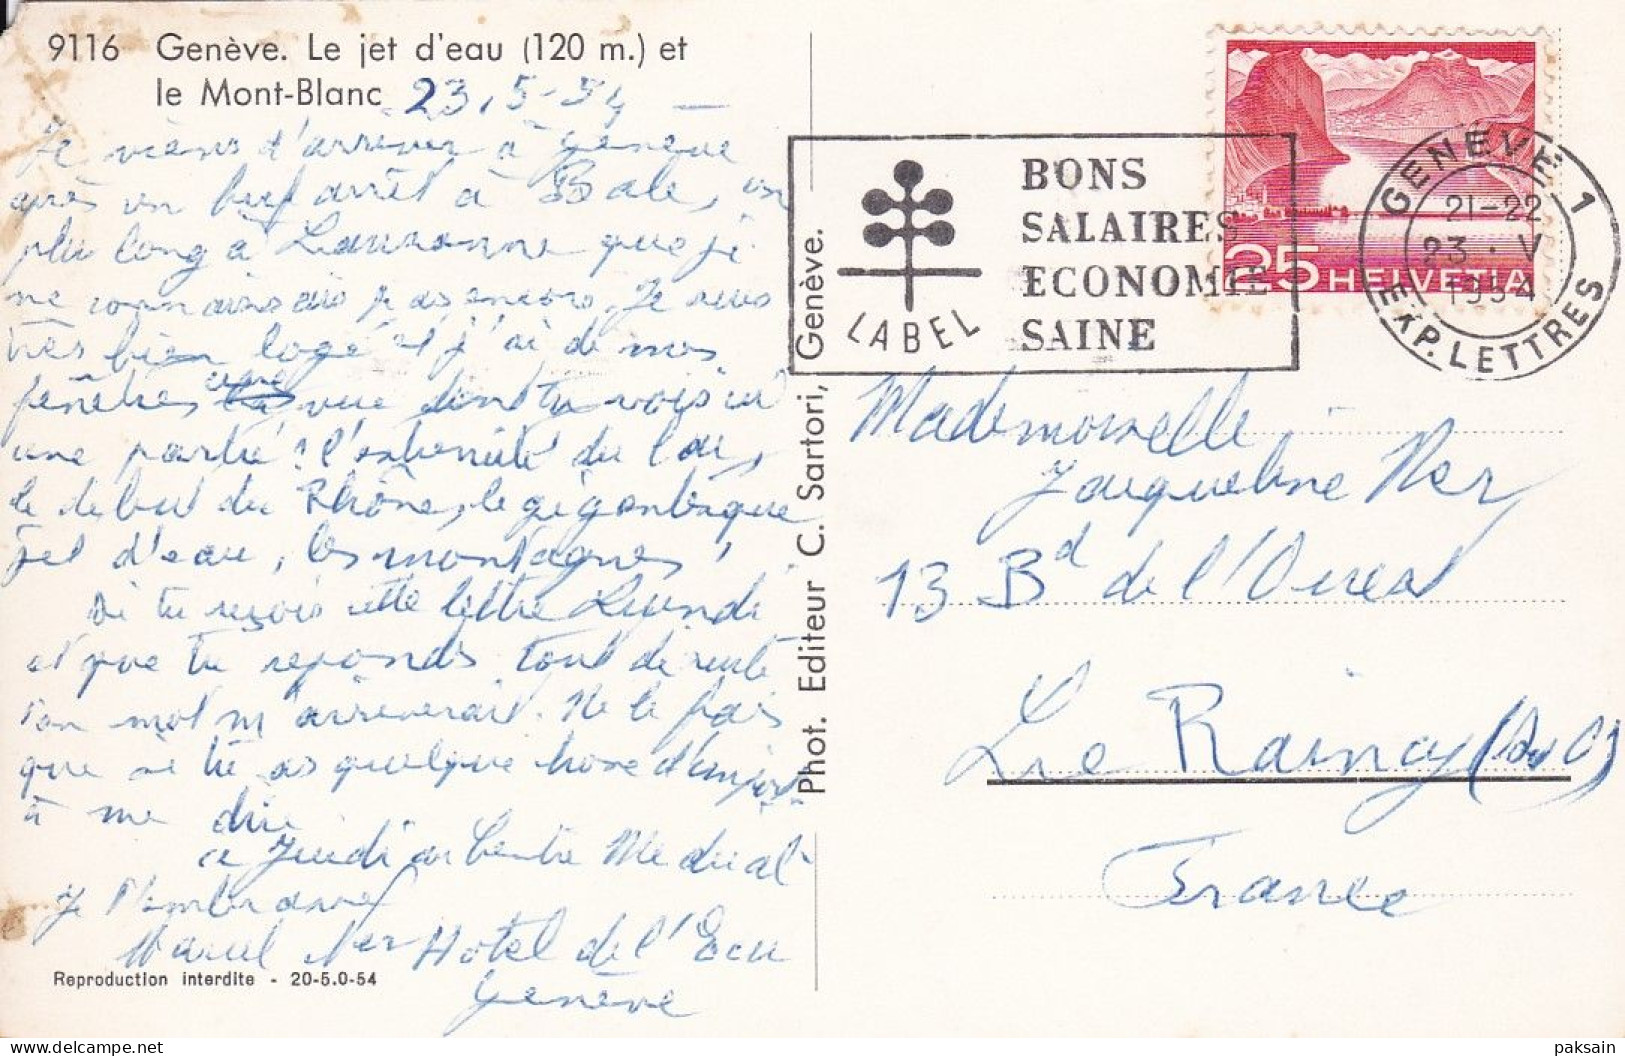 9116 Genève. Le jet d'eau (120 m.) et
le Mont-Blanc 23.5-54
Je viens d'arriver à Genève
après un bref arrêt à Bale, un
plu long à Lausanne que je
ne connaissais pas encore. Je suis
très bien logé et j'ai de mes
fenêtres une vue dont tu vois ici
une partie : l'extremité du lac,
le début du Rhône, le gigantesque
jet d'eau, les montagnes,
Si tu reçois cette lettre Lundi
et que tu reponds tout de suite
ton mot m'arriverait. Ne le fais
que si tu as quelque chose d'import
à me dire
Jeudi
Je t'embrasse
Marcel Ner Hotel de l'Ecu
Genève
Reproduction interdite - 20-5.0-54
Phot. Editeur C. Sartori, Genève.
LABEL
BONS
SALAIRES
ECONOMIE
SAINE
25 HELVETIA
GENÈVE 1
21-22
23.V
1954
EXP. LETTRES
Mademoiselle
Jacqueline Ner
13 Bd de l'Ouest
Le Raincy (S et O)
France
delcampe.net
paksain